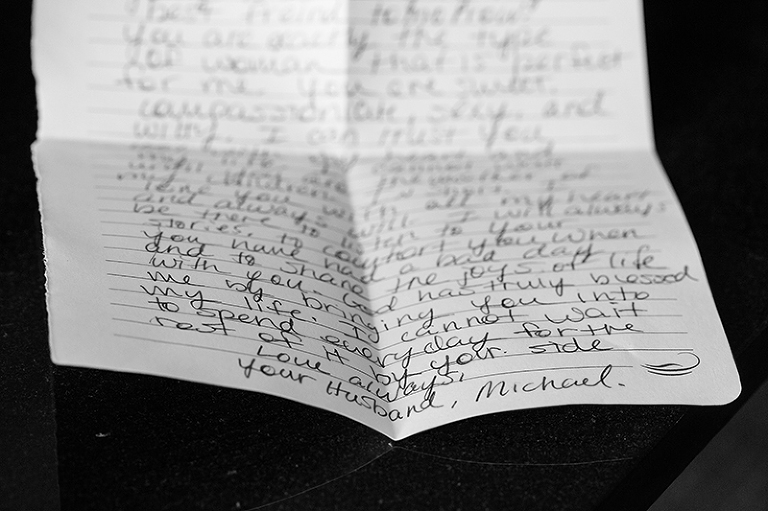 best friend tomorrow!
You are exactly the type
of woman that is perfect
for me. You are sweet,
compassionate, sexy, and
witty. I can trust you
with
my children
love you with all my heart
and always will. I will always
be there to listen to your
stories, to comfort you when
you have had a bad day
and to share the joys of life
with you. God has truly blessed
me by bringing you into
my life. I cannot wait
to spend everyday for the
rest of it by your side
Love always,
Your Husband, Michael.